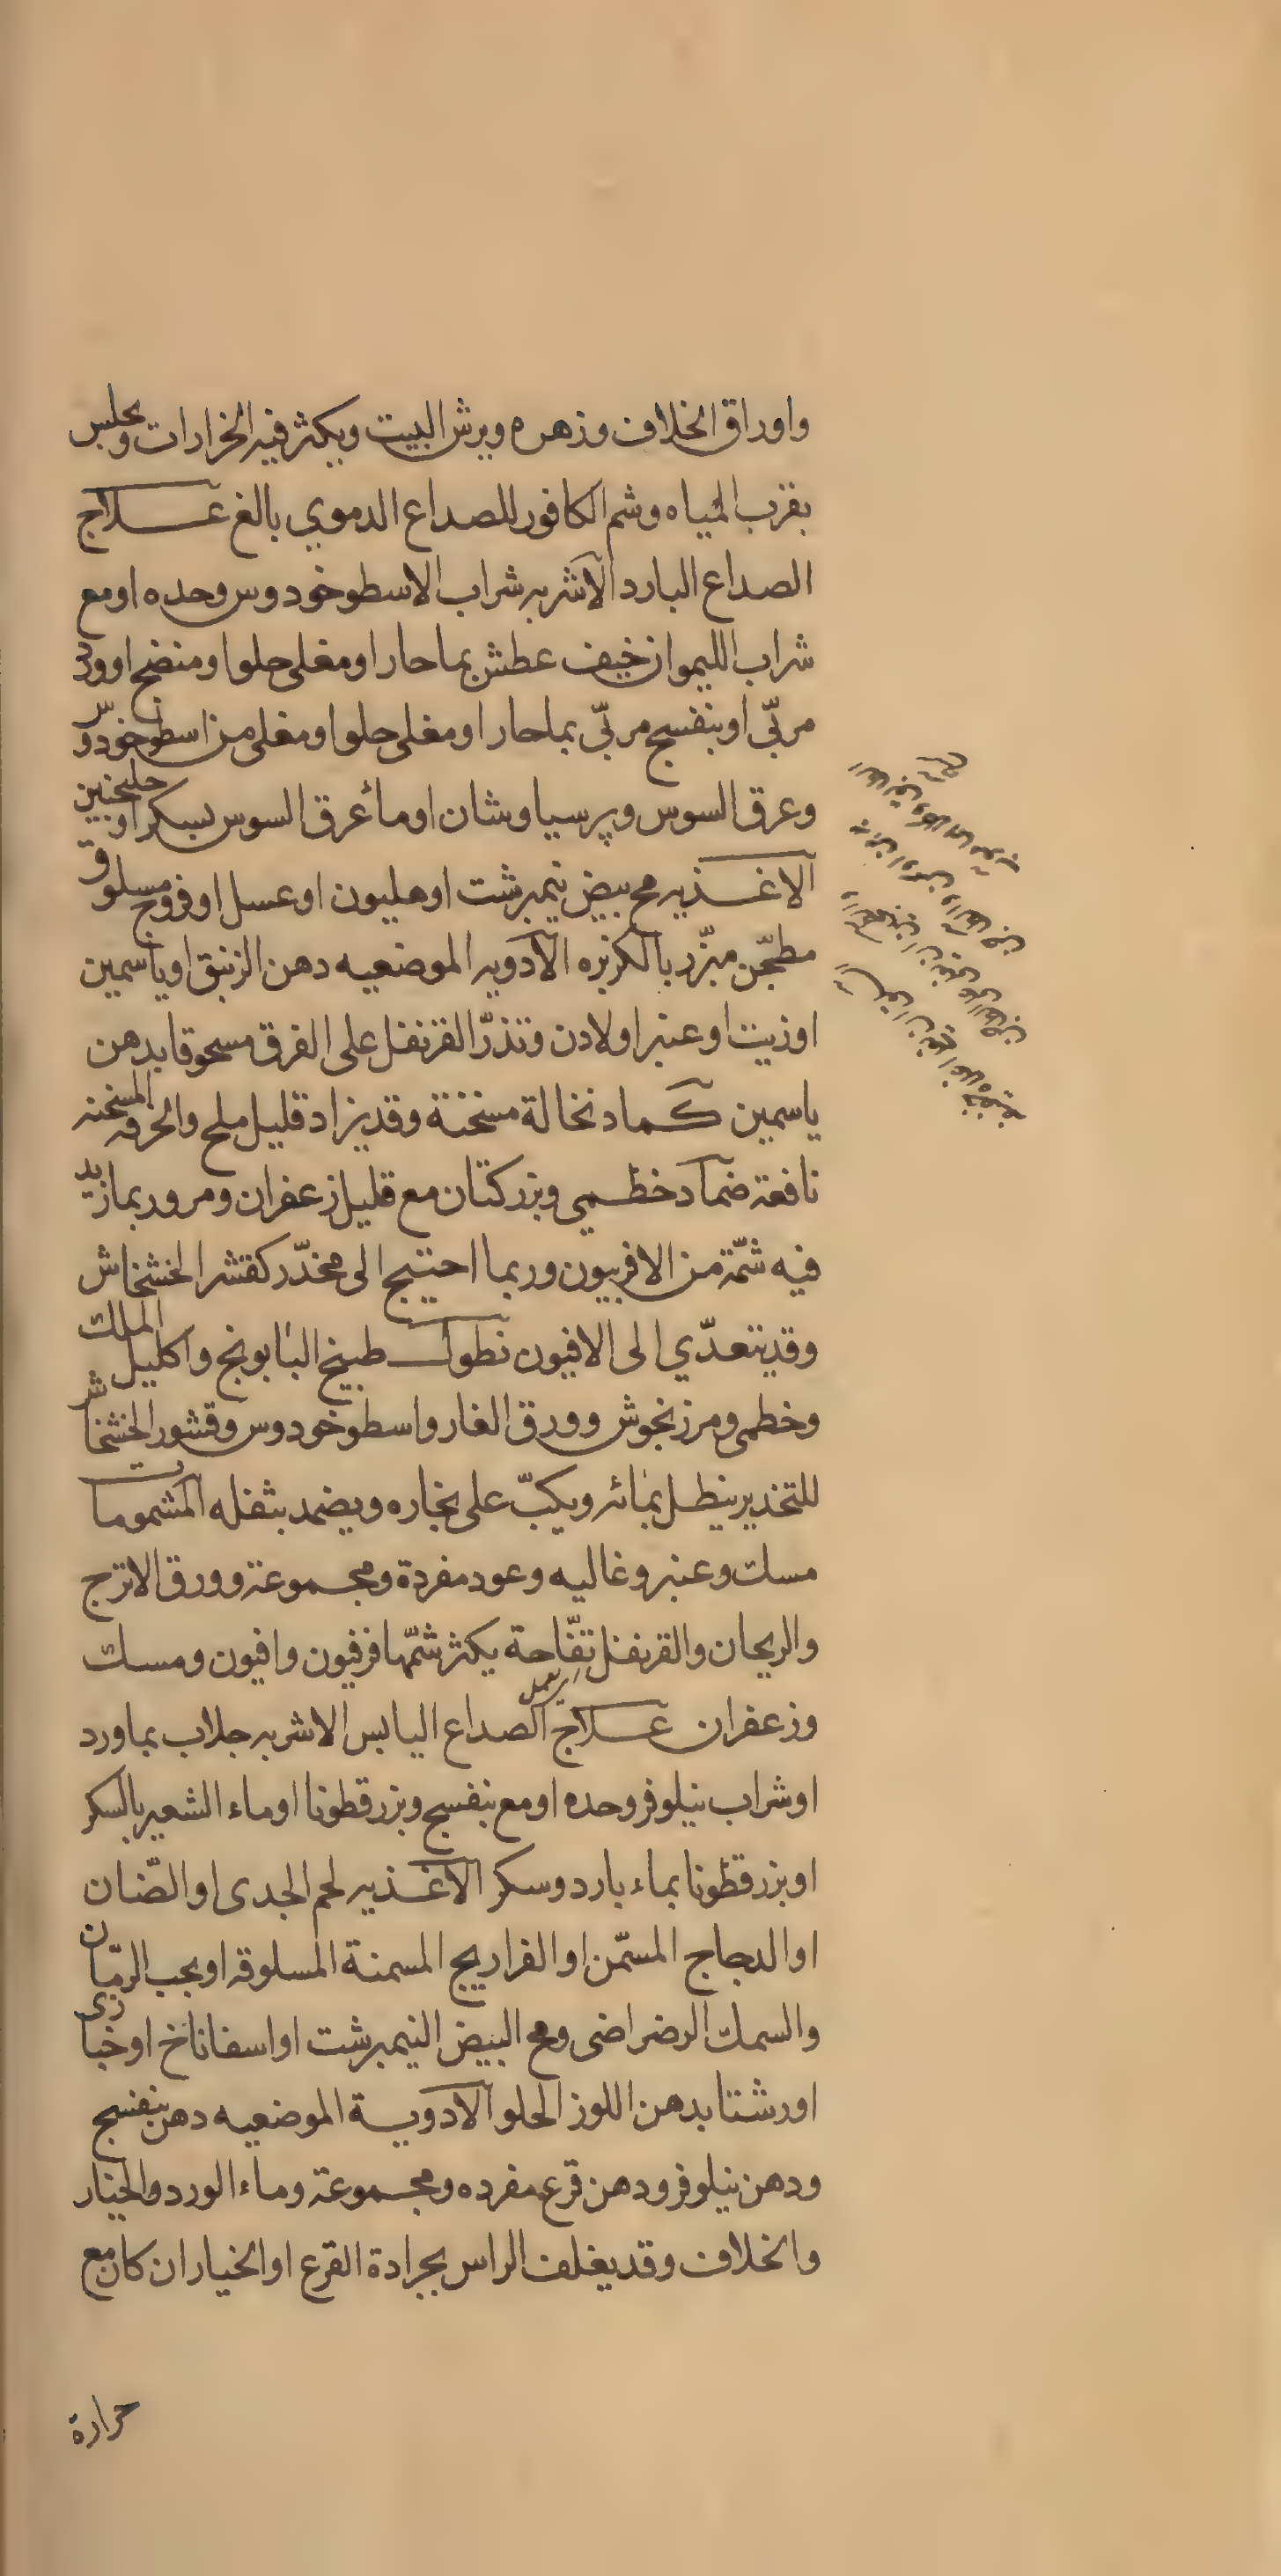 واوراق الخلاف وزهره ويرش البيت ويكثر فيه الخرارات ويجلس
بقرب المياه وشم الكافور للصداع الدموي بالغ علاج
الصداع البارد الاشربه شراب الاسطوخودوس وحده او مع
شراب الليمو ان خيف عطش بما حار او مغلى حلو او منضج او ورد
مربّى او بنفسج مربّى بما حار او مغلى حلو او مغلى من اسطوخودوس
وعرق السوس وپرسياوشان او مأ عرق السوس بسكر او جلنجبين
الاغذيه مح بيض نيمبرشت او هليون او عسل او فروج مسلوق
مطجّن مبزّر بالكزبره الادويه الموضعيه دهن الزنبق او ياسمين
او زيت او عنبر او لادن وتذرّ القرنفل على الفرق مسحوقا بدهن
ياسمين كماد نخالة مسخنة وقد يزاد قليل ملح والخرقه المسخنه
نافعة ضماد خطمي وبزر كتان مع قليل زعفران ومر وربما زيد
فيه شمّة من الافربيون وربما احتيج الى مخدّر كقشر الخشخاش
وقد يتعدّي الى الافيون نطول طبيخ البابونج واكليل الملك
وخطمى ومرزنجوش وورق الغار واسطوخودوس وقشور الخشخاش
للتخدير ينطل بمائه ويكبّ على بخاره ويضمد بثفله المشمومات
مسك وعنبر وغاليه وعود مفردة ومجموعة وورق الاترج
والريحان والقرنفل تفّاحة يكثر شمّها فرفيون وافيون ومسك
وزعفران علاج الصداع اليابس الاشربه جلاب بماورد
او شراب نيلوفر وحده او مع بنفسج وبزرقطونا او ماء الشعير بالسكر
او بزرقطونا بماء بارد وسكر الاغذيه لحم الجدى او الضّان
او الدجاج المسمّن او الفراريج المسمنة المسلوقه او بحب الرمّان
والسمك الرضراضى ومح البيض النيمبرشت او اسفاناخ او خبازى
او رشتا بدهن اللوز الحلو الادوية الموضعيه دهن بنفسج
ودهن نيلوفر ودهن قرع مفرده ومجموعة وماء الورد والخيار
والخلاف وقد يغلف الراس بجرادة القرع او الخيار ان كان مع
حرارة